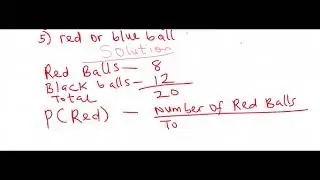 5) red or blue ball
Solution
Red Balls — 8
Black balls — 12
Total 20
P(Red) — Number of Red Balls
To